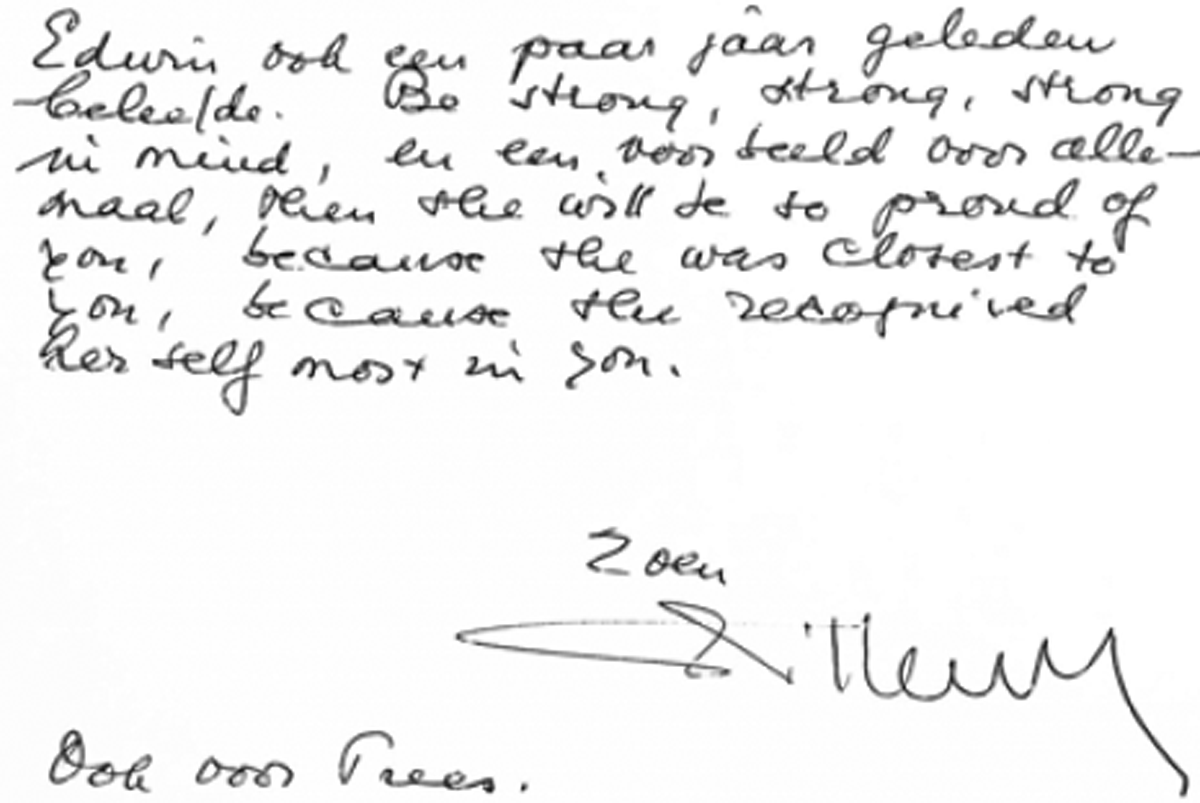 Edwin ook een paar jaar geleden
beleefde. Be strong, strong, strong
in mind, en een voorbeeld voor alle-
maal, then she will be so proud of
you, because she was closest to
you, because she recognized
herself most in you.
Zoen
Ook voor Trees.